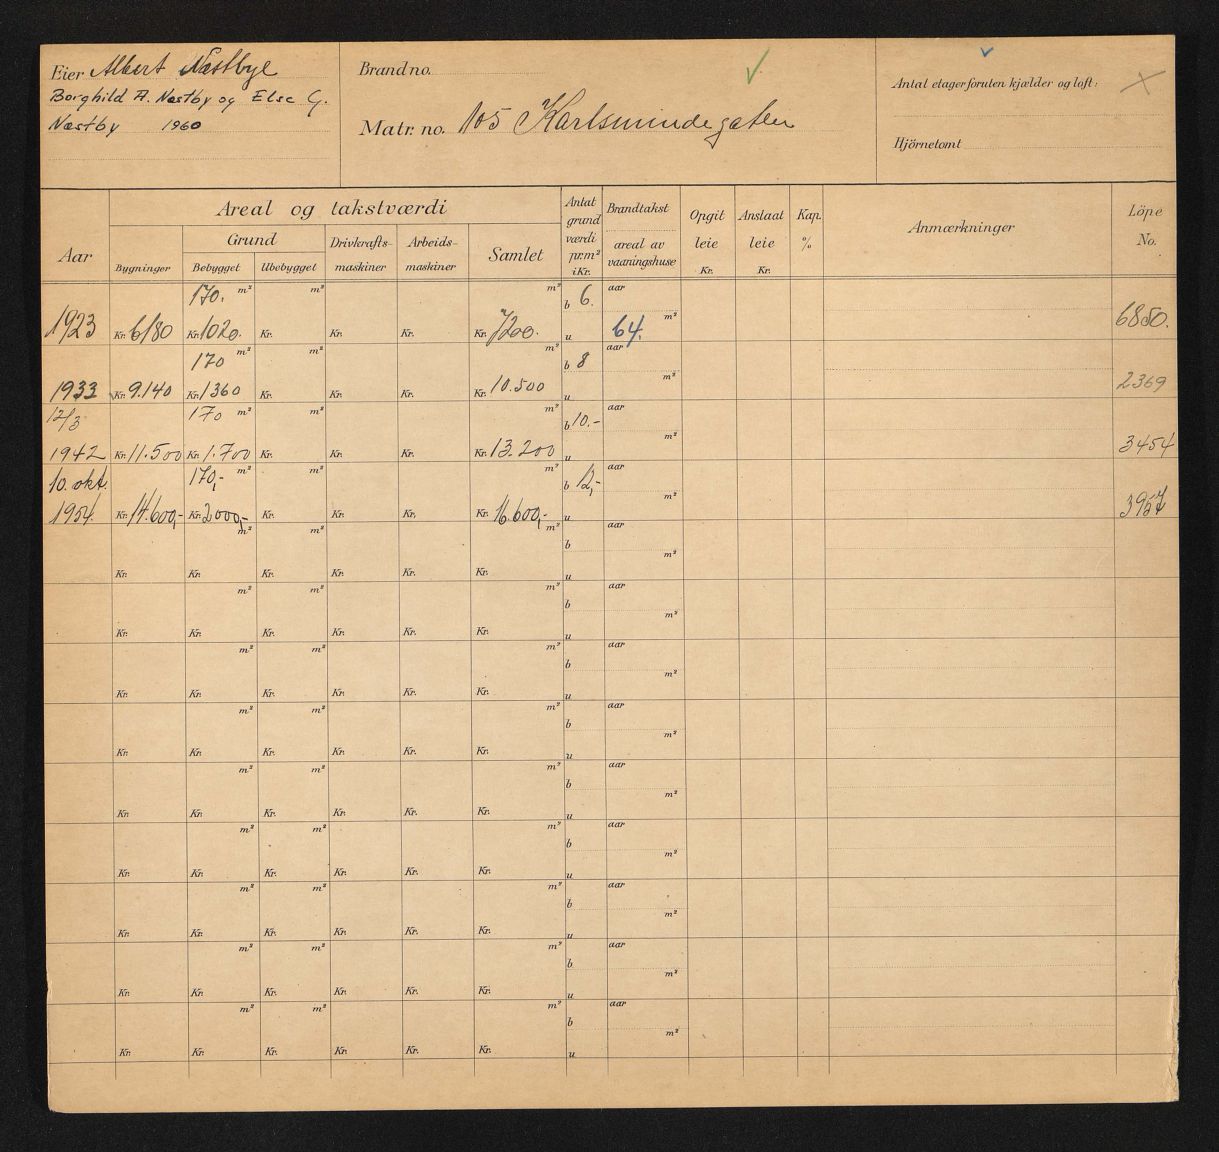 Eier Albert Næstbye
Borghild A. Næstby og Else G.
Næstby 1960
Brand no.
Matr. no. 105 Karlsmindegaten
Antal etager foruten kjælder og loft:
Hjörnetomt
Aar
Areal og takstværdi
Bygninger
Grund
Bebygget
Ubebygget
Drivkrafts-
maskiner
Arbeids-
maskiner
Samlet
Antat
grund
værdi
pr. m²
i Kr.
Brandtakst
areal av
vaaningshuse
Opgit
leie
Kr.
Anslaat
leie
Kr.
Kap.
%
Anmærkninger
Löpe
No.
170. m² m² m² b 6. aar
1923 Kr. 6180 Kr. 1020. Kr. Kr. Kr. Kr. 7200. u 64. m² 6850.
170 m² m² m² b 8 aar
1933 Kr. 9.140 Kr. 1360 Kr. Kr. Kr. Kr. 10.500 u m² 2369
12/3 170 m² m² m² b 10.- aar
1942 Kr. 11.500 Kr. 1.700 Kr. Kr. Kr. Kr. 13.200 u m² 3454
10. okt. 170,- m² m² m² b 12,- aar
1954. Kr. 14.600,- Kr. 2000,- Kr. Kr. Kr. Kr. 16.600,- u m² 3957
m² m² m² b aar
Kr. Kr. Kr. Kr. Kr. Kr. u m²
m² m² m² b aar
Kr. Kr. Kr. Kr. Kr. Kr. u m²
m² m² m² b aar
Kr. Kr. Kr. Kr. Kr. Kr. u m²
m² m² m² b aar
Kr. Kr. Kr. Kr. Kr. Kr. u m²
m² m² m² b aar
Kr. Kr. Kr. Kr. Kr. Kr. u m²
m² m² m² b aar
Kr. Kr. Kr. Kr. Kr. Kr. u m²
m² m² m² b aar
Kr. Kr. Kr. Kr. Kr. Kr. u m²
m² m² m² b aar
Kr. Kr. Kr. Kr. Kr. Kr. u m²
m² m² m² b aar
Kr. Kr. Kr. Kr. Kr. Kr. u m²